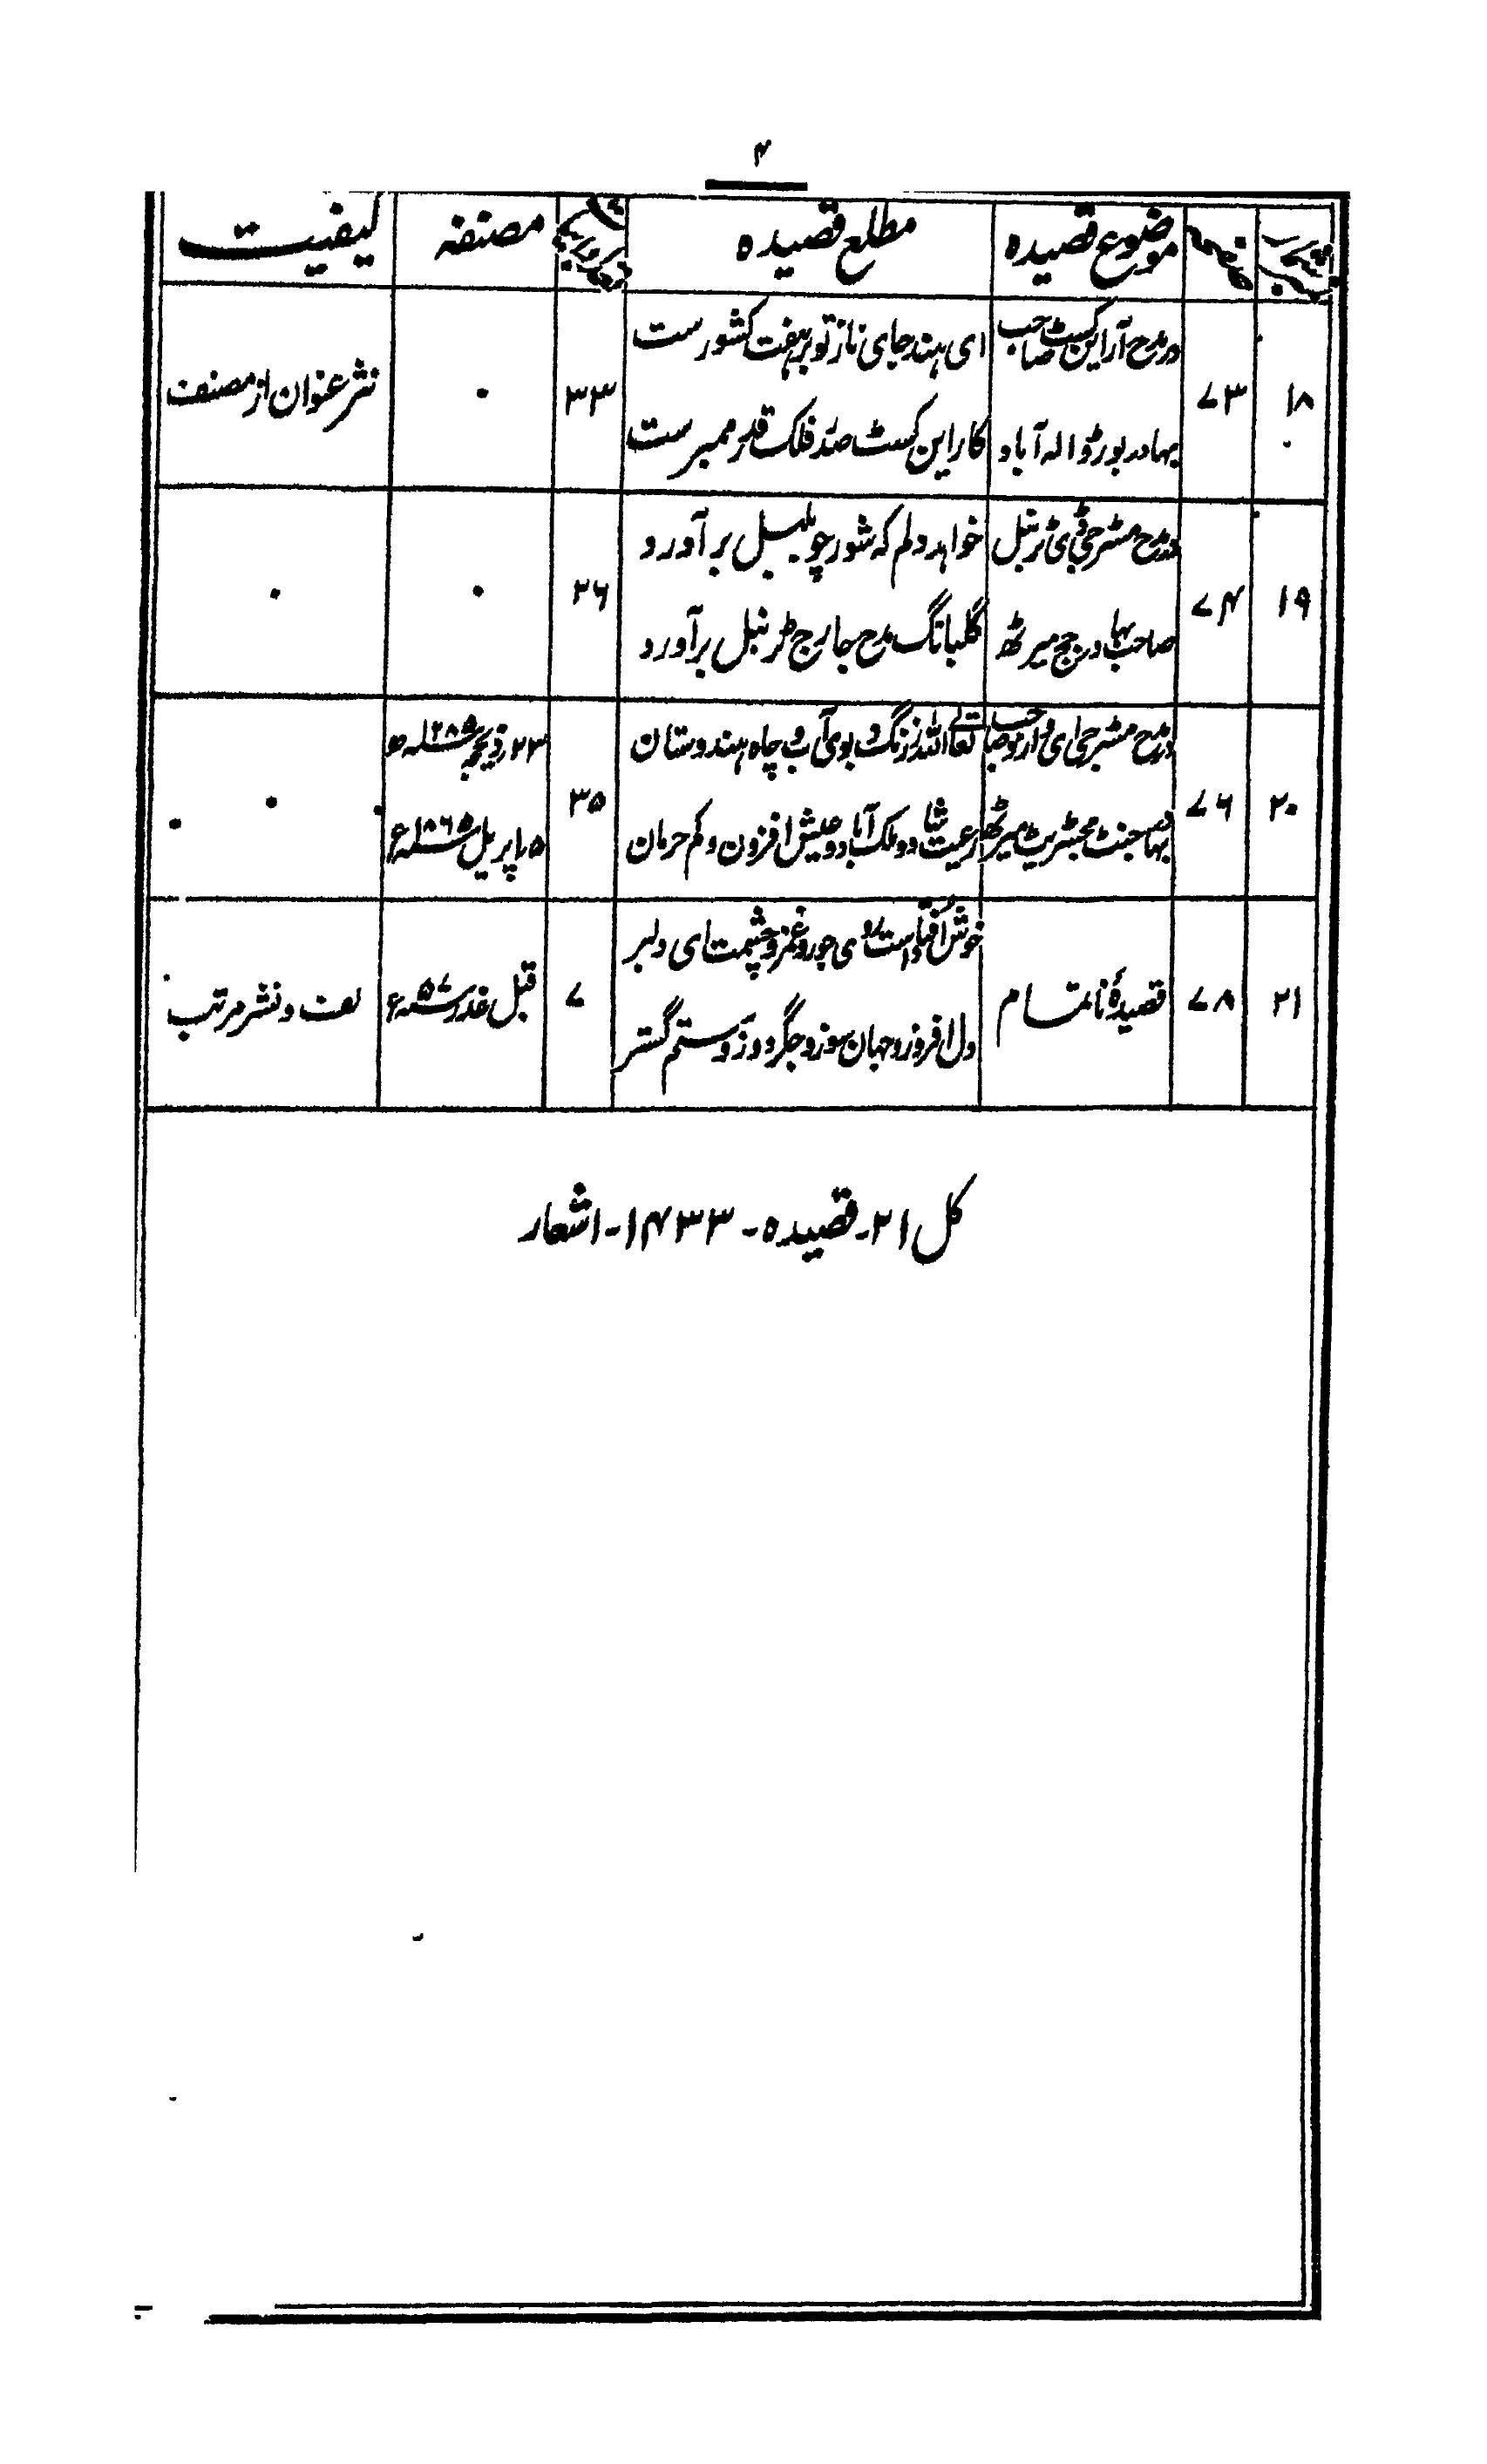 ۴
موضوع قصیدہ مطلع قصیدہ مصنفہ کیفیت
۱۸ ۷۳ درمدح آراین کسٹ صاحب بہادر بورڈ الہ آباد
ای ہند جای ناز تو بر ہفت کشورست
کاراین کسٹ صدر فلک قدر ممبرست
۳۳ ۰ نثر عنوان از مصنف
۱۹ ۷۴ درمدح مسٹر جی ڈی ٹرنبل صاحب بہادر جج میرٹھ
خواہد دلم کہ شور چو بلبل برآورد
گلبانگ مدح جارج ٹرنبل برآورد
۲۶ ۰ ۰
۲۰ ۷۶ درمدح مسٹر جی ای وارڈ صاحب بہادر جنٹ مجسٹریٹ میرٹھ
تعالے اللہ ز رنگ و بوی آب و چاہ ہندوستان
رعیت شاد و ملک آباد و عیش افزون و کم حرمان
۳۵
۲۳ ذیحجہ ۱۲۸۵ھ
۵ اپریل ۱۸۶۵ء
۰
۲۱ ۷۸ قصیدۂ ناتمام
خوش افتاد است روی و غمز و چشمت ای دلبر
دل افروز و جہان سوز و جگر دوز و ستم گستر
۷ قبل غدر ۵۷ء لف و نشر مرتب
کل ۲۱۔ قصیدہ۔ ۱۴۳۳۔ اشعار